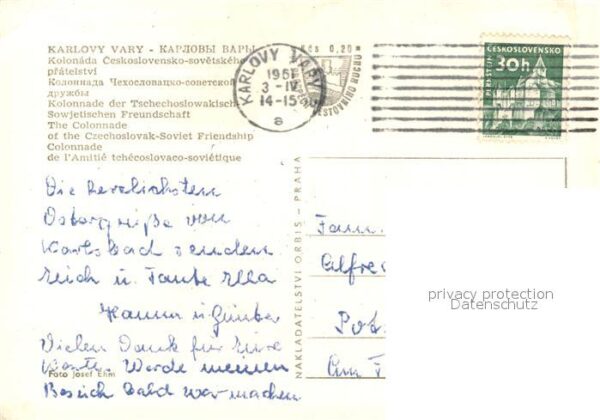 KARLOVY VARY - КАРЛОВЫ ВАРЫ
Kolonáda Československo-sovětského
přátelství
Колоннада Чехословацко-советской
дружбы
Kolonnade der Tschechoslowakisch-
Sowjetischen Freundschaft
The Colonnade
of the Czechoslovak-Soviet Friendship
Colonnade
de l'Amitié tchécoslovaco-soviétique
Kčs 0,20
KARLOVY VARY
3-IV
14-15
a
CESTOVNÍHO RUCHU
ČESKOSLOVENSKO
30h
NAKLADATELSTVÍ ORBIS - PRAHA
Die herzlichsten
Ostergrüße von
Karlsbad senden
Euch u. Tante Ella
Hanna u. Günter
Vielen Dank für Eure
Karte. Werde meinen
Besuch bald war machen
Foto Josef Ehm
Fam.
Alfre
Pots
Am
privacy protection
Datenschutz